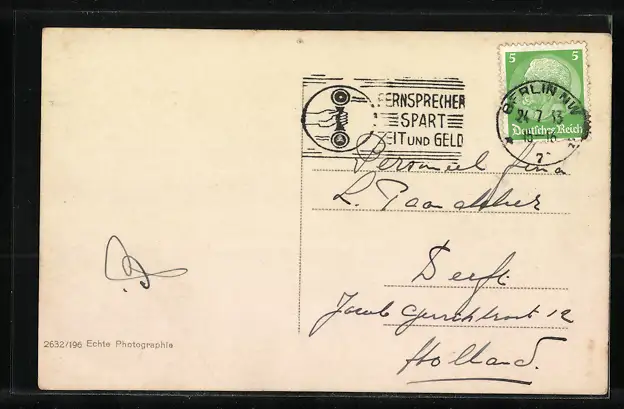 5 5
FERNSPRECHER
SPART
ZEIT UND GELD
BERLIN NW
24.7.
Deutsches Reich
Personeel Fima
L.
Delft
Jacob Gerritstraat 12
Holland.
2632/196 Echte Photographie